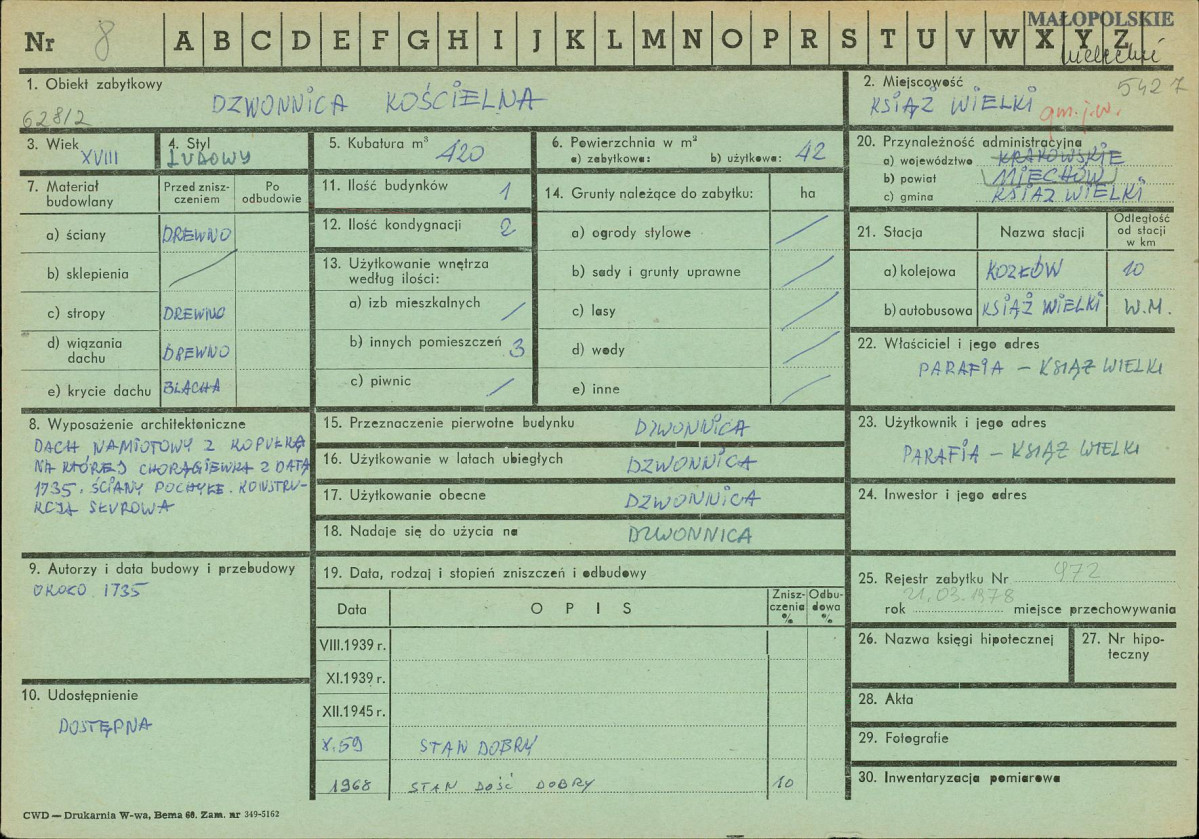 MAŁOPOLSKIE
Nr 8 A B C D E F G H I J K L M N O P R S T U V W X Y Z
1. Obiekt zabytkowy
DZWONNICA KOŚCIELNA
628/2
2. Miejscowość 5427
KSIĄŻ WIELKI gm. j.w.
3. Wiek
XVIII
4. Styl
LUDOWY
5. Kubatura m³ 420
6. Powierzchnia w m²
a) zabytkowa: b) użytkowa: 42
20. Przynależność administracyjna
a) województwo KRAKOWSKIE
b) powiat MIECHÓW
c) gmina KSIĄŻ WIELKI
7. Materiał budowlany
Przed zniszczeniem
Po odbudowie
a) ściany DREWNO
b) sklepienia
c) stropy DREWNO
d) wiązania dachu DREWNO
e) krycie dachu BLACHA
11. Ilość budynków 1
12. Ilość kondygnacji 2
13. Użytkowanie wnętrza
według ilości:
a) izb mieszkalnych
b) innych pomieszczeń 3
c) piwnic
14. Grunty należące do zabytku: ha
a) ogrody stylowe
b) sady i grunty uprawne
c) lasy
d) wody
e) inne
21. Stacja Nazwa stacji Odległość od stacji w km
a) kolejowa KOZŁÓW 10
b) autobusowa KSIĄŻ WIELKI W.M.
22. Właściciel i jego adres
PARAFIA – KSIĄŻ WIELKI
8. Wyposażenie architektoniczne
DACH NAMIOTOWY Z KOPUŁKĄ
NA KTÓREJ CHORĄGIEWKA Z DATĄ
1735. ŚCIANY POCHYŁE. KONSTRU-
KCJA SŁUPOWA
15. Przeznaczenie pierwotne budynku DZWONNICA
16. Użytkowanie w latach ubiegłych DZWONNICA
17. Użytkowanie obecne DZWONNICA
18. Nadaje się do użycia na DZWONNICA
23. Użytkownik i jego adres
PARAFIA – KSIĄŻ WIELKI
24. Inwestor i jego adres
9. Autorzy i data budowy i przebudowy
OKOŁO 1735
10. Udostępnienie
DOSTĘPNA
19. Data, rodzaj i stopień zniszczeń i odbudowy
Data OPIS Zniszczenia % Odbudowa %
VIII.1939 r.
XI.1939 r.
XII.1945 r.
X.59 STAN DOBRY
1968 STAN DOŚĆ DOBRY 10
25. Rejestr zabytku Nr 972
rok 21.03.1978 miejsce przechowywania
26. Nazwa księgi hipotecznej
27. Nr hipoteczny
28. Akta
29. Fotografie
30. Inwentaryzacja pomiarowa
CWD — Drukarnia W-wa, Bema 60. Zam. nr 349-5162